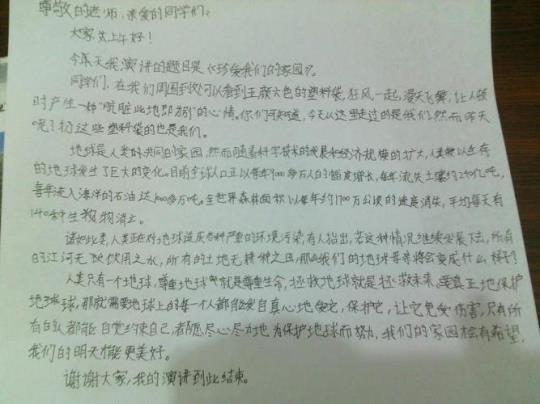 尊敬的老师,亲爱的同学们:
大家上午好!
今天我演讲的题目是《珍爱我们的家园》。
同学们,在我们周围到处可以看到五颜六色的塑料袋,狂风一起,漫天飞舞,让人顿
时产生一种"肮脏此地即为"的心情。你们可知道,今天从这里走过的是我们,然而昨天
呢?扔这些塑料袋的也是我们。
地球是人类的共同的家园,然而随着科学技术的发展和经济规模的扩大,人类赖以生存
的地球发生了巨大的变化。目前全球人口正以每年900多万人的幅度增长,每年流失土壤约240亿吨,
每年流入海洋的石油达1000多万吨。全世界森林面积以每年约1700万公顷的速度消失,平均每天有
140种生物消亡。
诸如此类,人类正在对地球造成各种严重的环境污染,有人指出,若这种情况继续发展下去,所有
的江河无可饮用之水,所有的土地无耕种之田,那么我们的地球母亲将会变成什么样子?
人类只有一个地球,尊重地球就是尊重生命,拯救地球就是拯救未来。要真正地保护
地球,那就需要地球上的每一个人都能发自真心地爱它,保护它,让它免受伤害,只有所
有的人都能自觉约束自己,都愿尽心尽力地为保护地球而努力,我们的家园才会有希望,
我们的明天才能更美好。
谢谢大家,我的演讲到此结束。